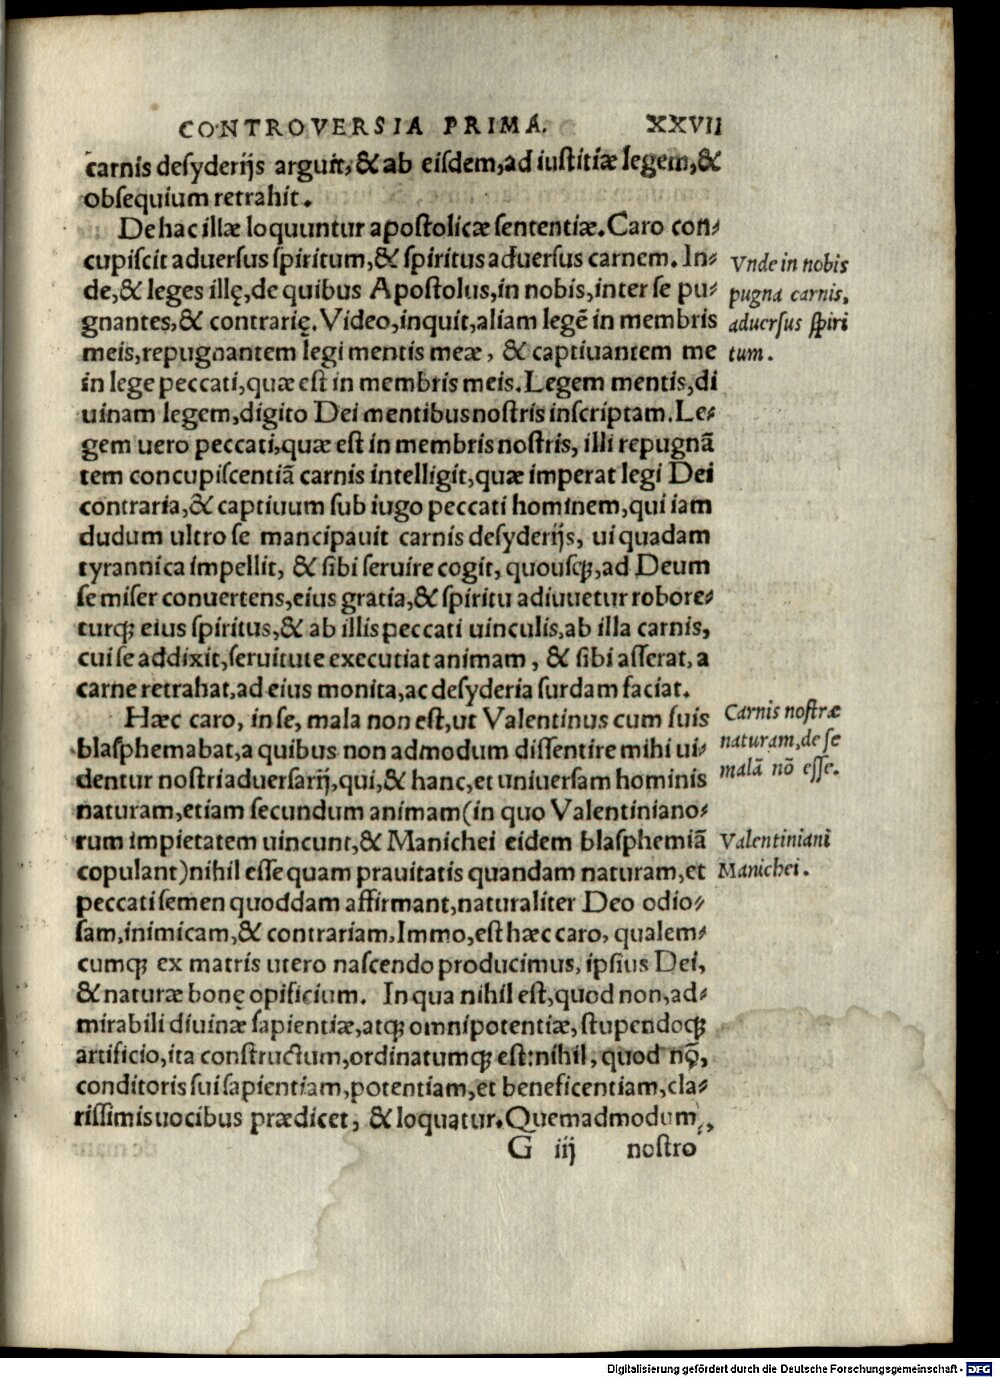 CONTROVERSIA PRIMA. XXVII
carnis desyderijs arguit, & ab eisdem, ad iustitiæ legem, &
obsequium retrahit.
De hac illæ loquuntur apostolicæ sententiæ. Caro con⸗
cupiscit aduersus spiritum, & spiritus aduersus carnem. In⸗
de, & leges illę, de quibus Apostolus, in nobis, inter se pu⸗
gnantes, & contrarię. Video, inquit, aliam legē in membris
meis, repugnantem legi mentis meæ, & captiuantem me
in lege peccati, quæ est in membris meis. Legem mentis, di
uinam legem, digito Dei mentibus nostris inscriptam. Le⸗
gem uero peccati, quæ est in membris nostris, illi repugnā
tem concupiscentiā carnis intelligit, quæ imperat legi Dei
contraria, & captiuum sub iugo peccati hominem, qui iam
dudum ultro se mancipauit carnis desyderijs, ui quadam
tyrannica impellit, & sibi seruire cogit, quousqꝫ, ad Deum
se miser conuertens, eius gratia, & spiritu adiuuetur robore⸗
turqꝫ eius spiritus, & ab illis peccati uinculis, ab illa carnis,
cui se addixit, seruitute executiat animam, & sibi asserat, a
carne retrahat, ad eius monita, ac desyderia surdam faciat.
Hæc caro, in se, mala non est, ut Valentinus cum suis
blasphemabat, a quibus non admodum dissentire mihi ui⸗
dentur nostri aduersarij, qui, & hanc, et uniuersam hominis
naturam, etiam secundum animam (in quo Valentiniano⸗
rum impietatem uincunt, & Manichei eidem blasphemiā
copulant) nihil esse quam prauitatis quandam naturam, et
peccati semen quoddam affirmant, naturaliter Deo odio⸗
sam, inimicam, & contrariam. Immo, est hæc caro, qualem⸗
cumqꝫ ex matris utero nascendo producimus, ipsius Dei,
& naturæ bonę opificium. In qua nihil est, quod non, ad⸗
mirabili diuinæ sapientiæ, atqꝫ omnipotentiæ, stupendoqꝫ
artificio, ita constructum, ordinatumqꝫ est: nihil, quod nō,
conditoris sui sapientiam, potentiam, et beneficentiam, cla⸗
rissimis uocibus prædicet, & loquatur. Quemadmodum,
G iij nostro
Vnde in nobis
pugna carnis,
aduersus spiri
tum.
Carnis nostræ
naturam, de se
malā nō esse.
Valentiniani
Manichei.
Digitalisierung gefördert durch die Deutsche Forschungsgemeinschaft - DFG